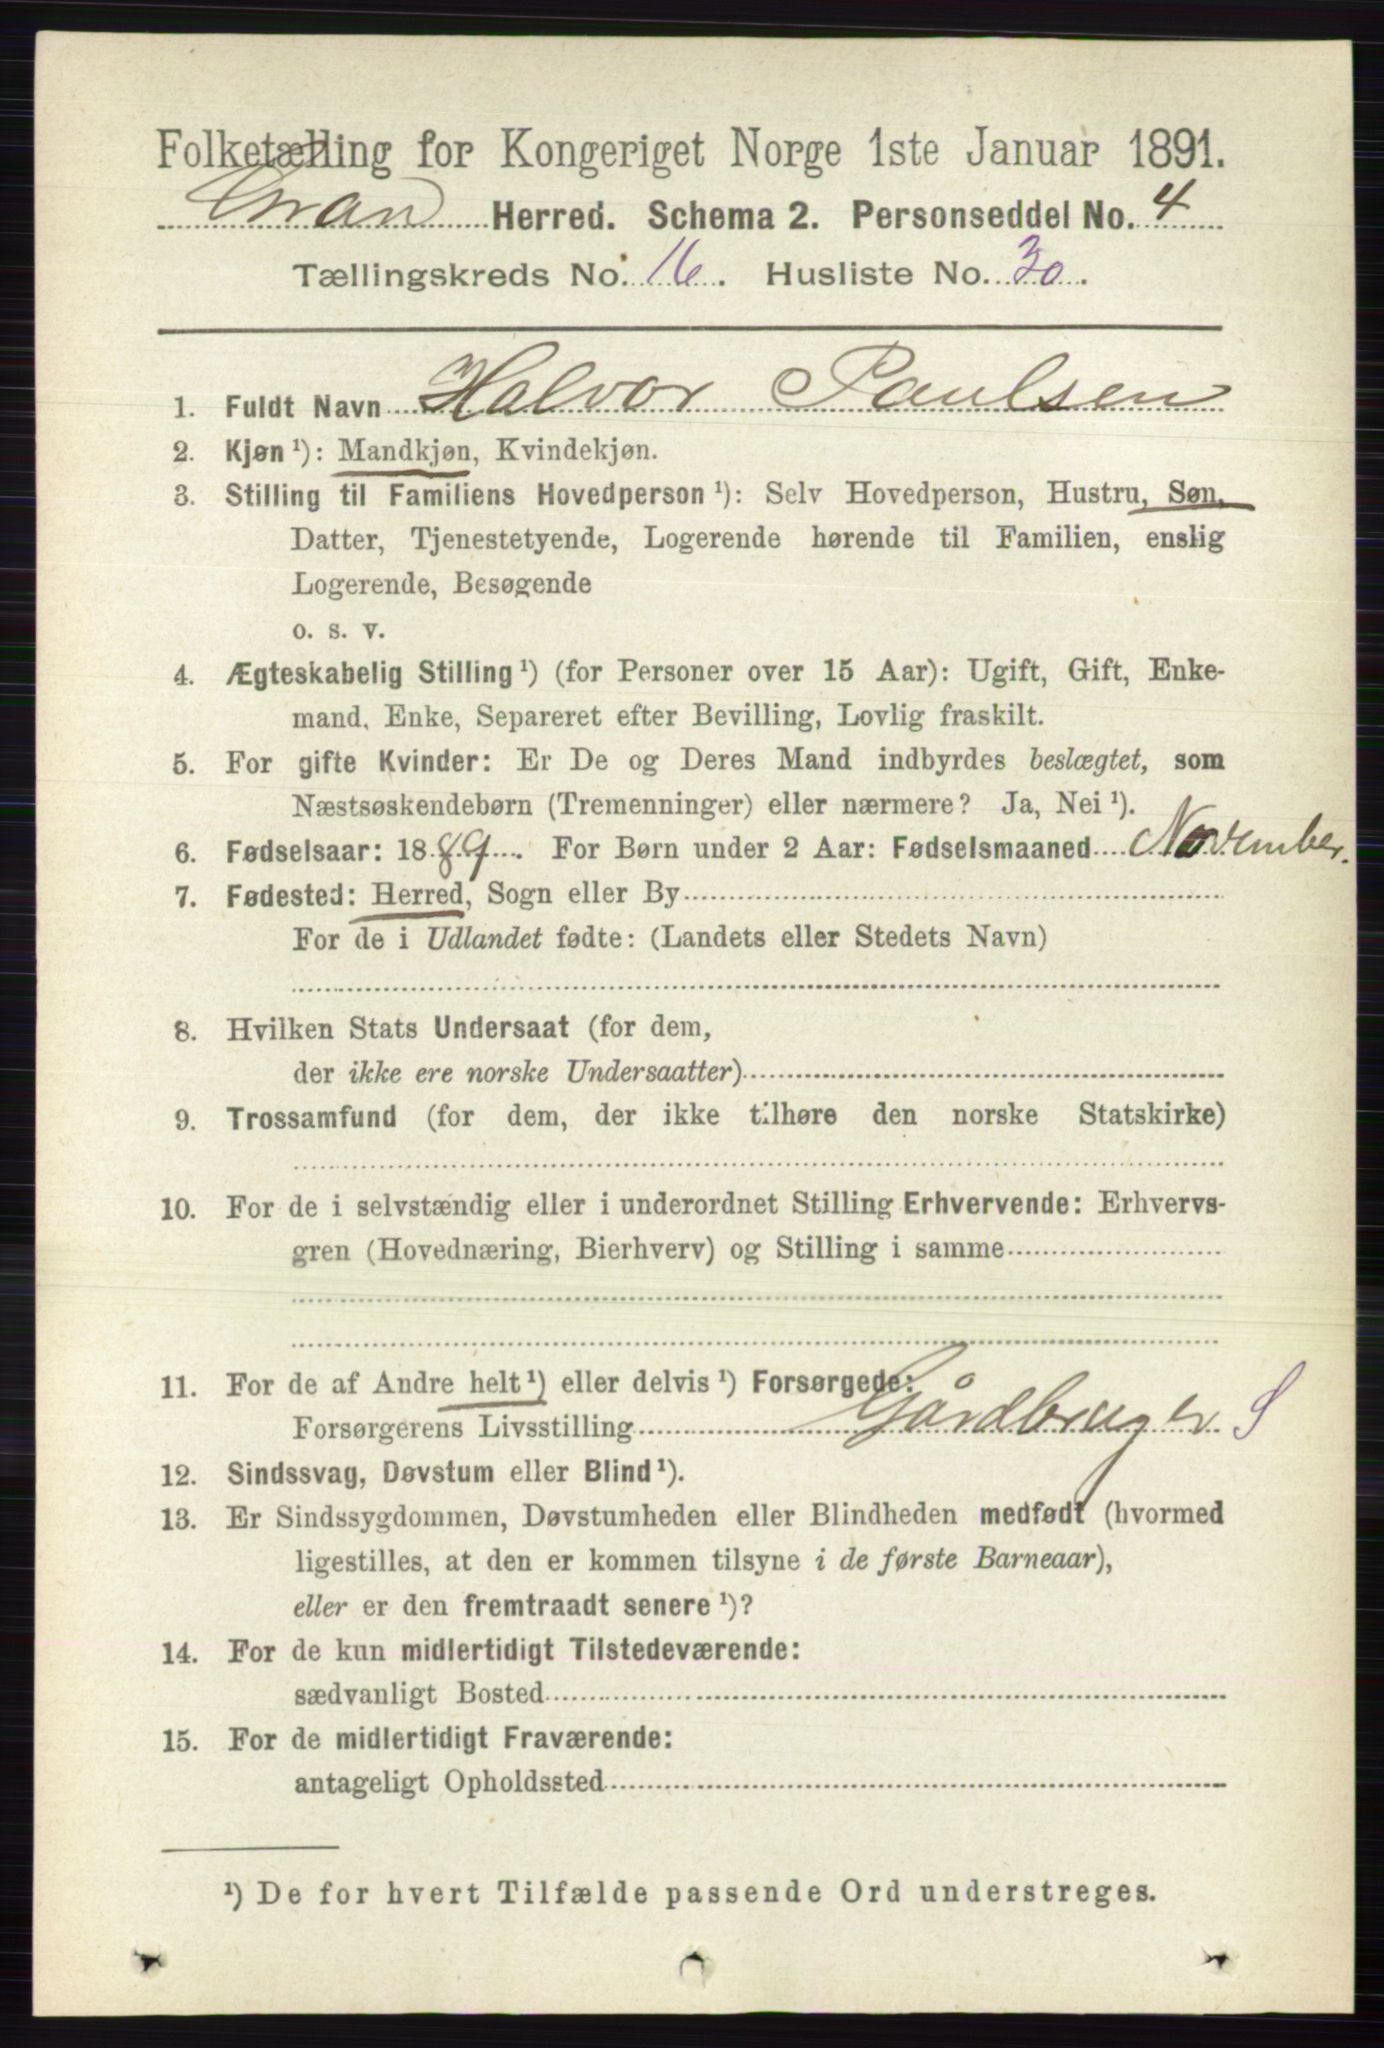 Folketælling for Kongeriget Norge 1ste Januar 1891.
Gran Herred. Schema 2. Personseddel No. 4
Tællingskreds No. 16. Husliste No. 30.
1. Fuldt Navn Halvor Paulsen
2. Kjøn ¹): Mandkjøn, Kvindekjøn.
3. Stilling til Familiens Hovedperson ¹): Selv Hovedperson, Hustru, Søn,
Datter, Tjenestetyende, Logerende hørende til Familien, enslig
Logerende, Besøgende
o. s. v.
4. Ægteskabelig Stilling ¹) (for Personer over 15 Aar): Ugift, Gift, Enke-
mand, Enke, Separeret efter Bevilling, Lovlig fraskilt.
5. For gifte Kvinder: Er De og Deres Mand indbyrdes beslægtet, som
Næstsøskendebørn (Tremenninger) eller nærmere? Ja, Nei ¹).
6. Fødselsaar: 1889. For Børn under 2 Aar: Fødselsmaaned November.
7. Fødested: Herred, Sogn eller By
For de i Udlandet fødte: (Landets eller Stedets Navn)
8. Hvilken Stats Undersaat (for dem,
der ikke ere norske Undersaatter)
9. Trossamfund (for dem, der ikke tilhøre den norske Statskirke)
10. For de i selvstændig eller i underordnet Stilling Erhvervende: Erhvervs-
gren (Hovednæring, Bierhverv) og Stilling i samme
11. For de af Andre helt ¹) eller delvis ¹) Forsørgede:
Forsørgerens Livsstilling Gårdbruger S
12. Sindssvag, Døvstum eller Blind ¹).
13. Er Sindssygdommen, Døvstumheden eller Blindheden medfødt (hvormed
ligestilles, at den er kommen tilsyne i de første Barneaar),
eller er den fremtraadt senere ¹)?
14. For de kun midlertidigt Tilstedeværende:
sædvanligt Bosted
15. For de midlertidigt Fraværende:
antageligt Opholdssted
¹) De for hvert Tilfælde passende Ord understreges.